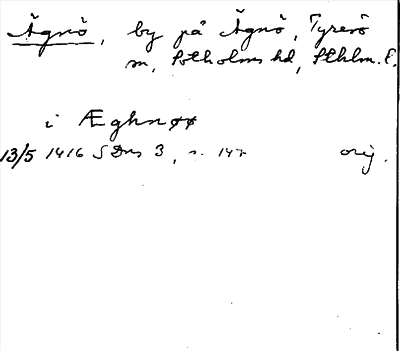 Ägnö, by på Ägnö, Tyresö
sn, Sotholms hd, Sthlm. l.
i Æghnøø
13/5 1416 SDns 3, s. 147 orig.